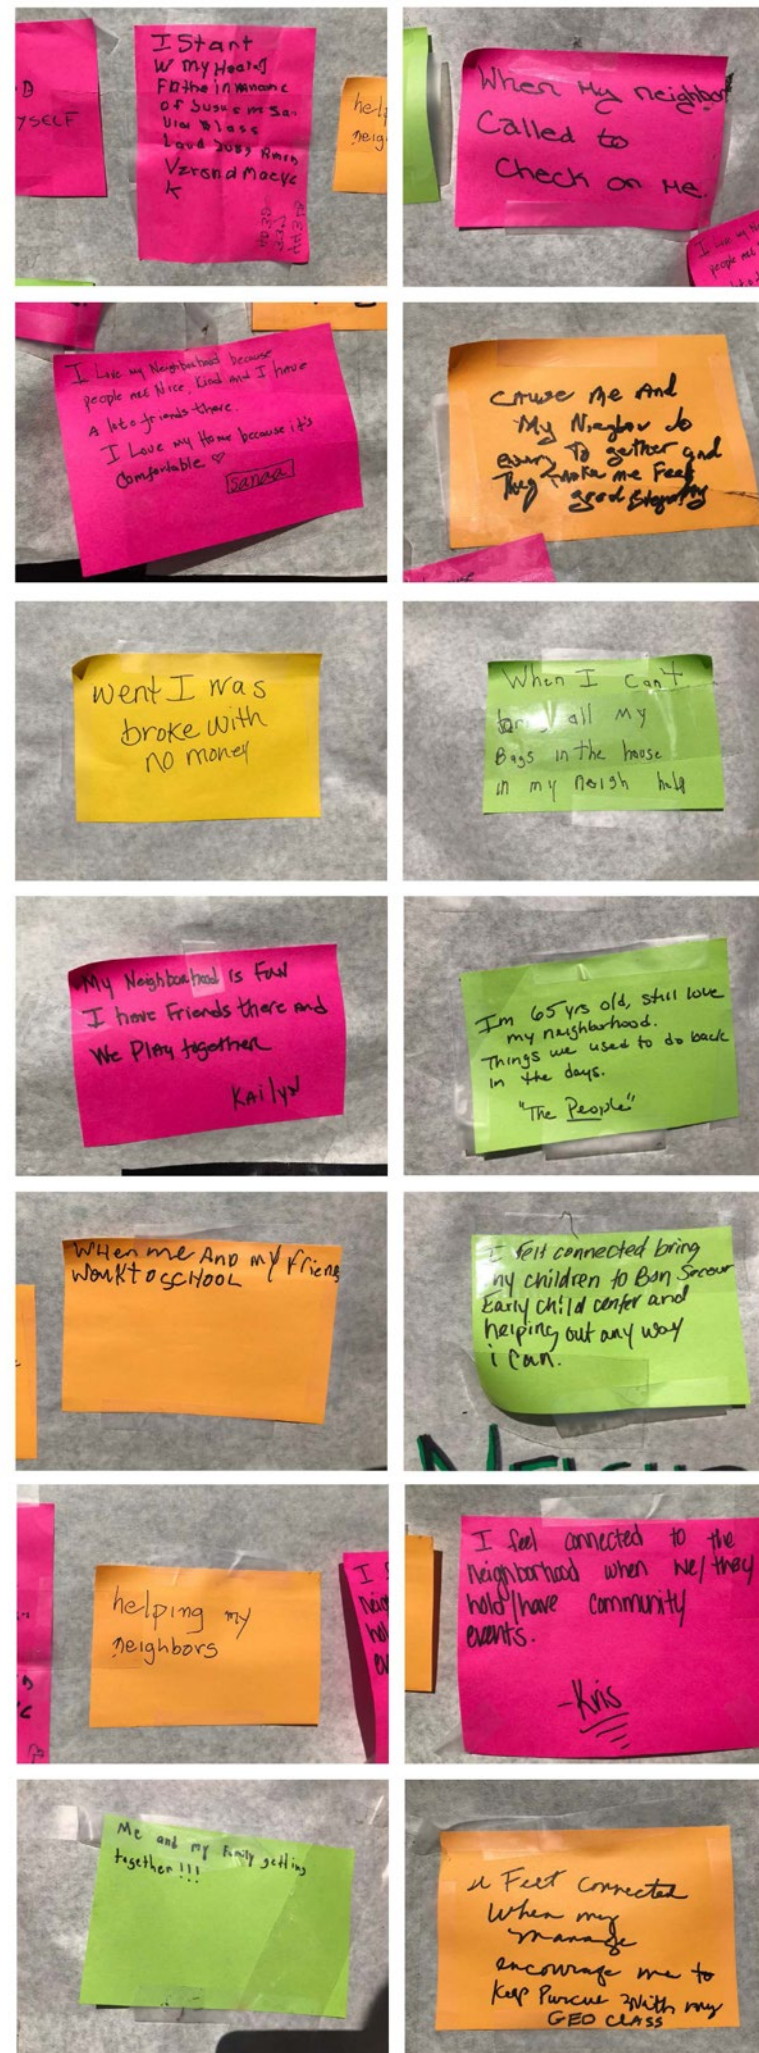 I Start
W my Heald
of
Loud
K
help
neig
YSELF
When My neighbor
Called to
Check on Me.
I Love my Ne
people not
I Love my Neighborhood because
people net Nice, Kind and I have
A lot o friends there.
I Love my Home because it's
Comfortable ♡
Sanaa
cause me And
My Nieghor do
every To gether and
They make me Feel
good
went I was
broke with
no money
When I Can't
all My
Bags in the house
in my neigh help
My Neighborhood is Fun
I have Friends there and
We Play together
Kailyn
Im 65 yrs old, still love
my neighborhood.
Things we used to do back
in the days.
"The People"
When me And my friens
walk to SCHOOL
I felt connected bring
my children to Bon Secour
Early child center and
helping out any way
i can.
helping my
neighbors
I feel connected to the
neighborhood when we/they
hold/have community
events.
-Kris
Me and my family getting
together!!!
I Felt connected
When my
manage
encourage me to
Keep Purcue with my
GED CLASS